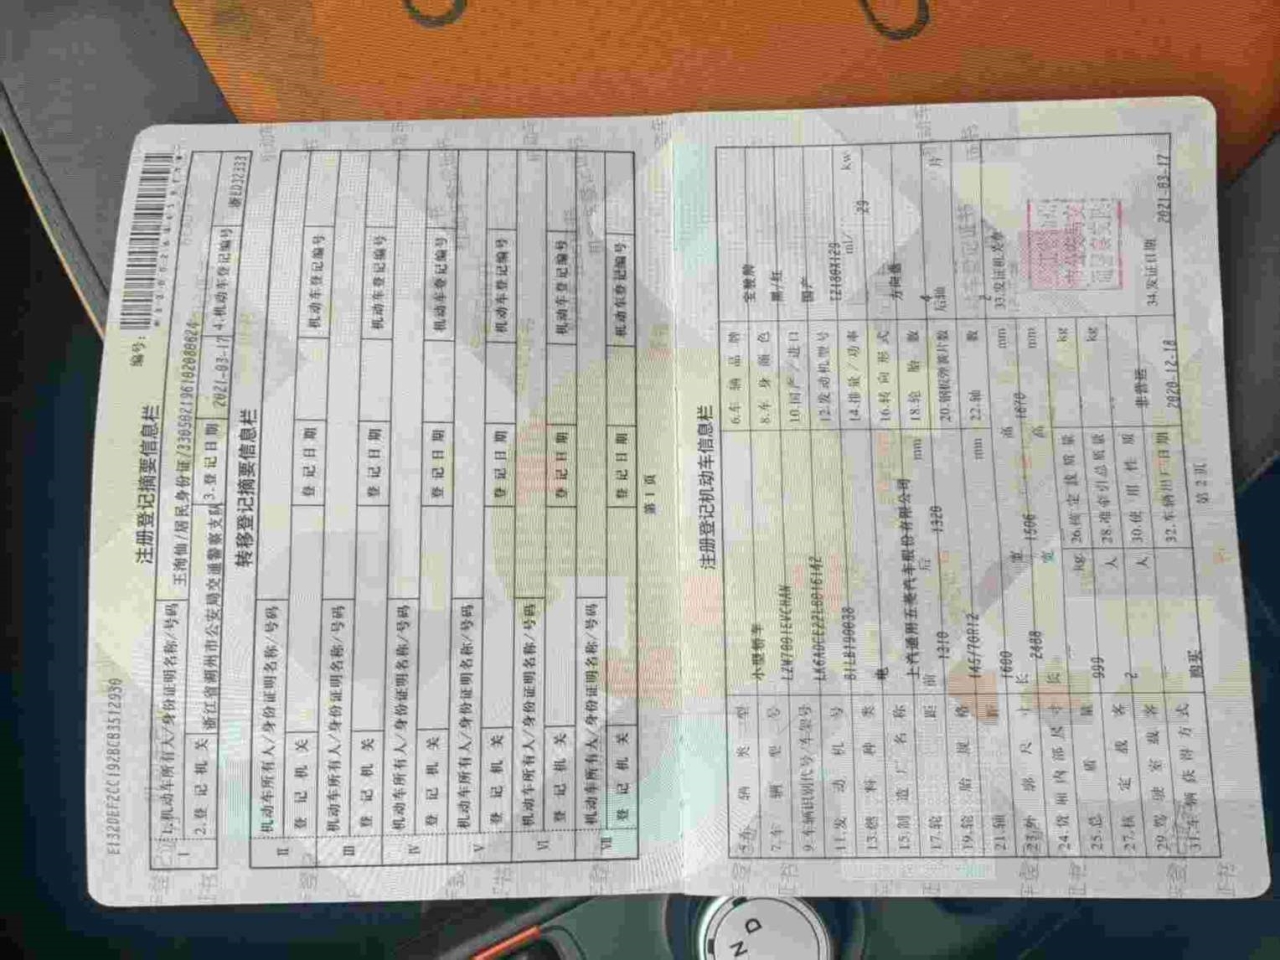 E132DEF2CC192BCB3512939
编号:
注册登记摘要信息栏
I
1.机动车所有人/身份证明名称/号码 王洵仙/居民身份证/330502196102080624
2.登记机关 浙江省湖州市公安局交通警察支队 3.登记日期 2021-03-17 4.机动车登记编号 浙ED32333
转移登记摘要信息栏
II
机动车所有人/身份证明名称/号码
登记机关 登记日期 机动车登记编号
III
机动车所有人/身份证明名称/号码
登记机关 登记日期 机动车登记编号
IV
机动车所有人/身份证明名称/号码
登记机关 登记日期 机动车登记编号
V
机动车所有人/身份证明名称/号码
登记机关 登记日期 机动车登记编号
VI
机动车所有人/身份证明名称/号码
登记机关 登记日期 机动车登记编号
VII
机动车所有人/身份证明名称/号码
登记机关 登记日期 机动车登记编号
第1页
注册登记机动车信息栏
5.车辆类型 小型轿车 6.车辆品牌 宝骏牌
7.车辆型号 LZW7001EVCHAN 8.车身颜色 黑/红
9.车辆识别代号/车架号 LK6ADCE22LB016142 10.国产/进口 国产
11.发动机号 B1LB190038 12.发动机型号 TZ180X129
13.燃料种类 电 14.排量/功率 ml/ 29 kw
15.制造厂名称 上汽通用五菱汽车股份有限公司 16.转向形式 方向盘
17.轮距 前 1310 后 1320 mm 18.轮胎数 4
19.轮胎规格 145/70R12 20.钢板弹簧片数 后轴 片
21.轴距 1600 mm 22.轴数 2
23.外廓尺寸 长 2488 宽 1506 高 1670 mm 33.发证机关章
24.货厢内部尺寸 长 宽 高 mm
25.总质量 999 kg 26.核定载质量 kg
27.核定载客 2 人 28.准牵引总质量 kg
29.驾驶室载客 人 30.使用性质 非营运
31.车辆获得方式 购买 32.车辆出厂日期 2020-12-18 34.发证日期 2021-03-17
第2页
N D